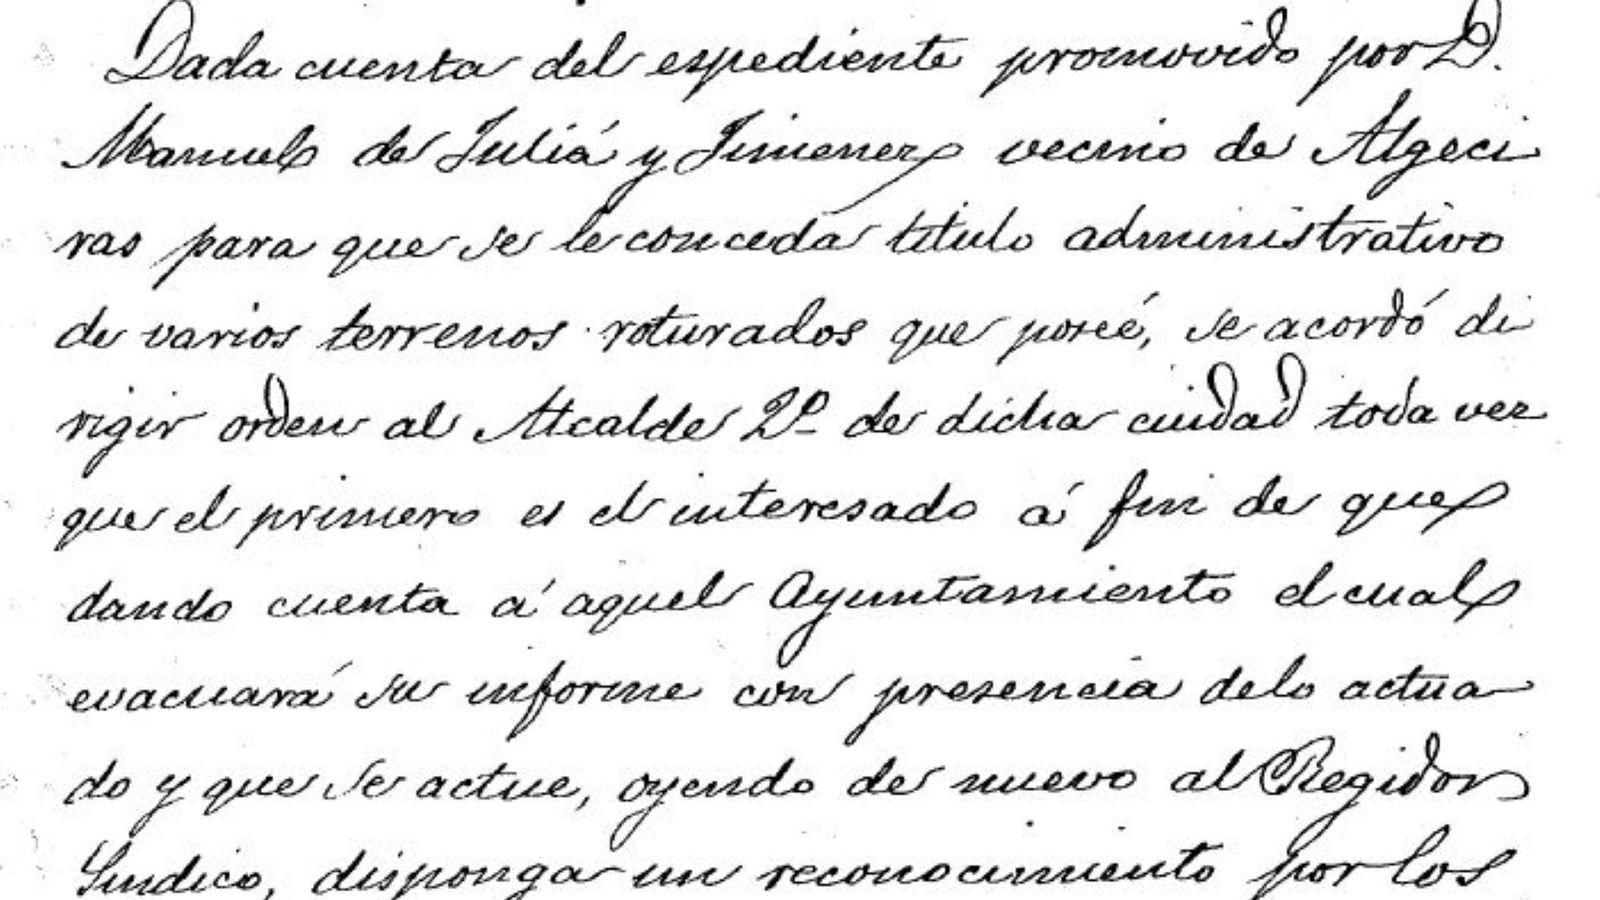 Dada cuenta del espediente promovido por D.
Manuel de Juliá y Jimenez vecino de Algeci
ras para que se le conceda titulo administrativo
de varios terrenos roturados que poseé, se acordó di
rigir orden al Alcalde 2º de dicha ciudad toda vez
que el primero es el interesado á fin de que
dando cuenta á aquel Ayuntamiento el cual
evacuará su informe con presencia delo actua
do y que se actue, oyendo de nuevo al Regidor
Sindico, disponga un reconocimiento por los